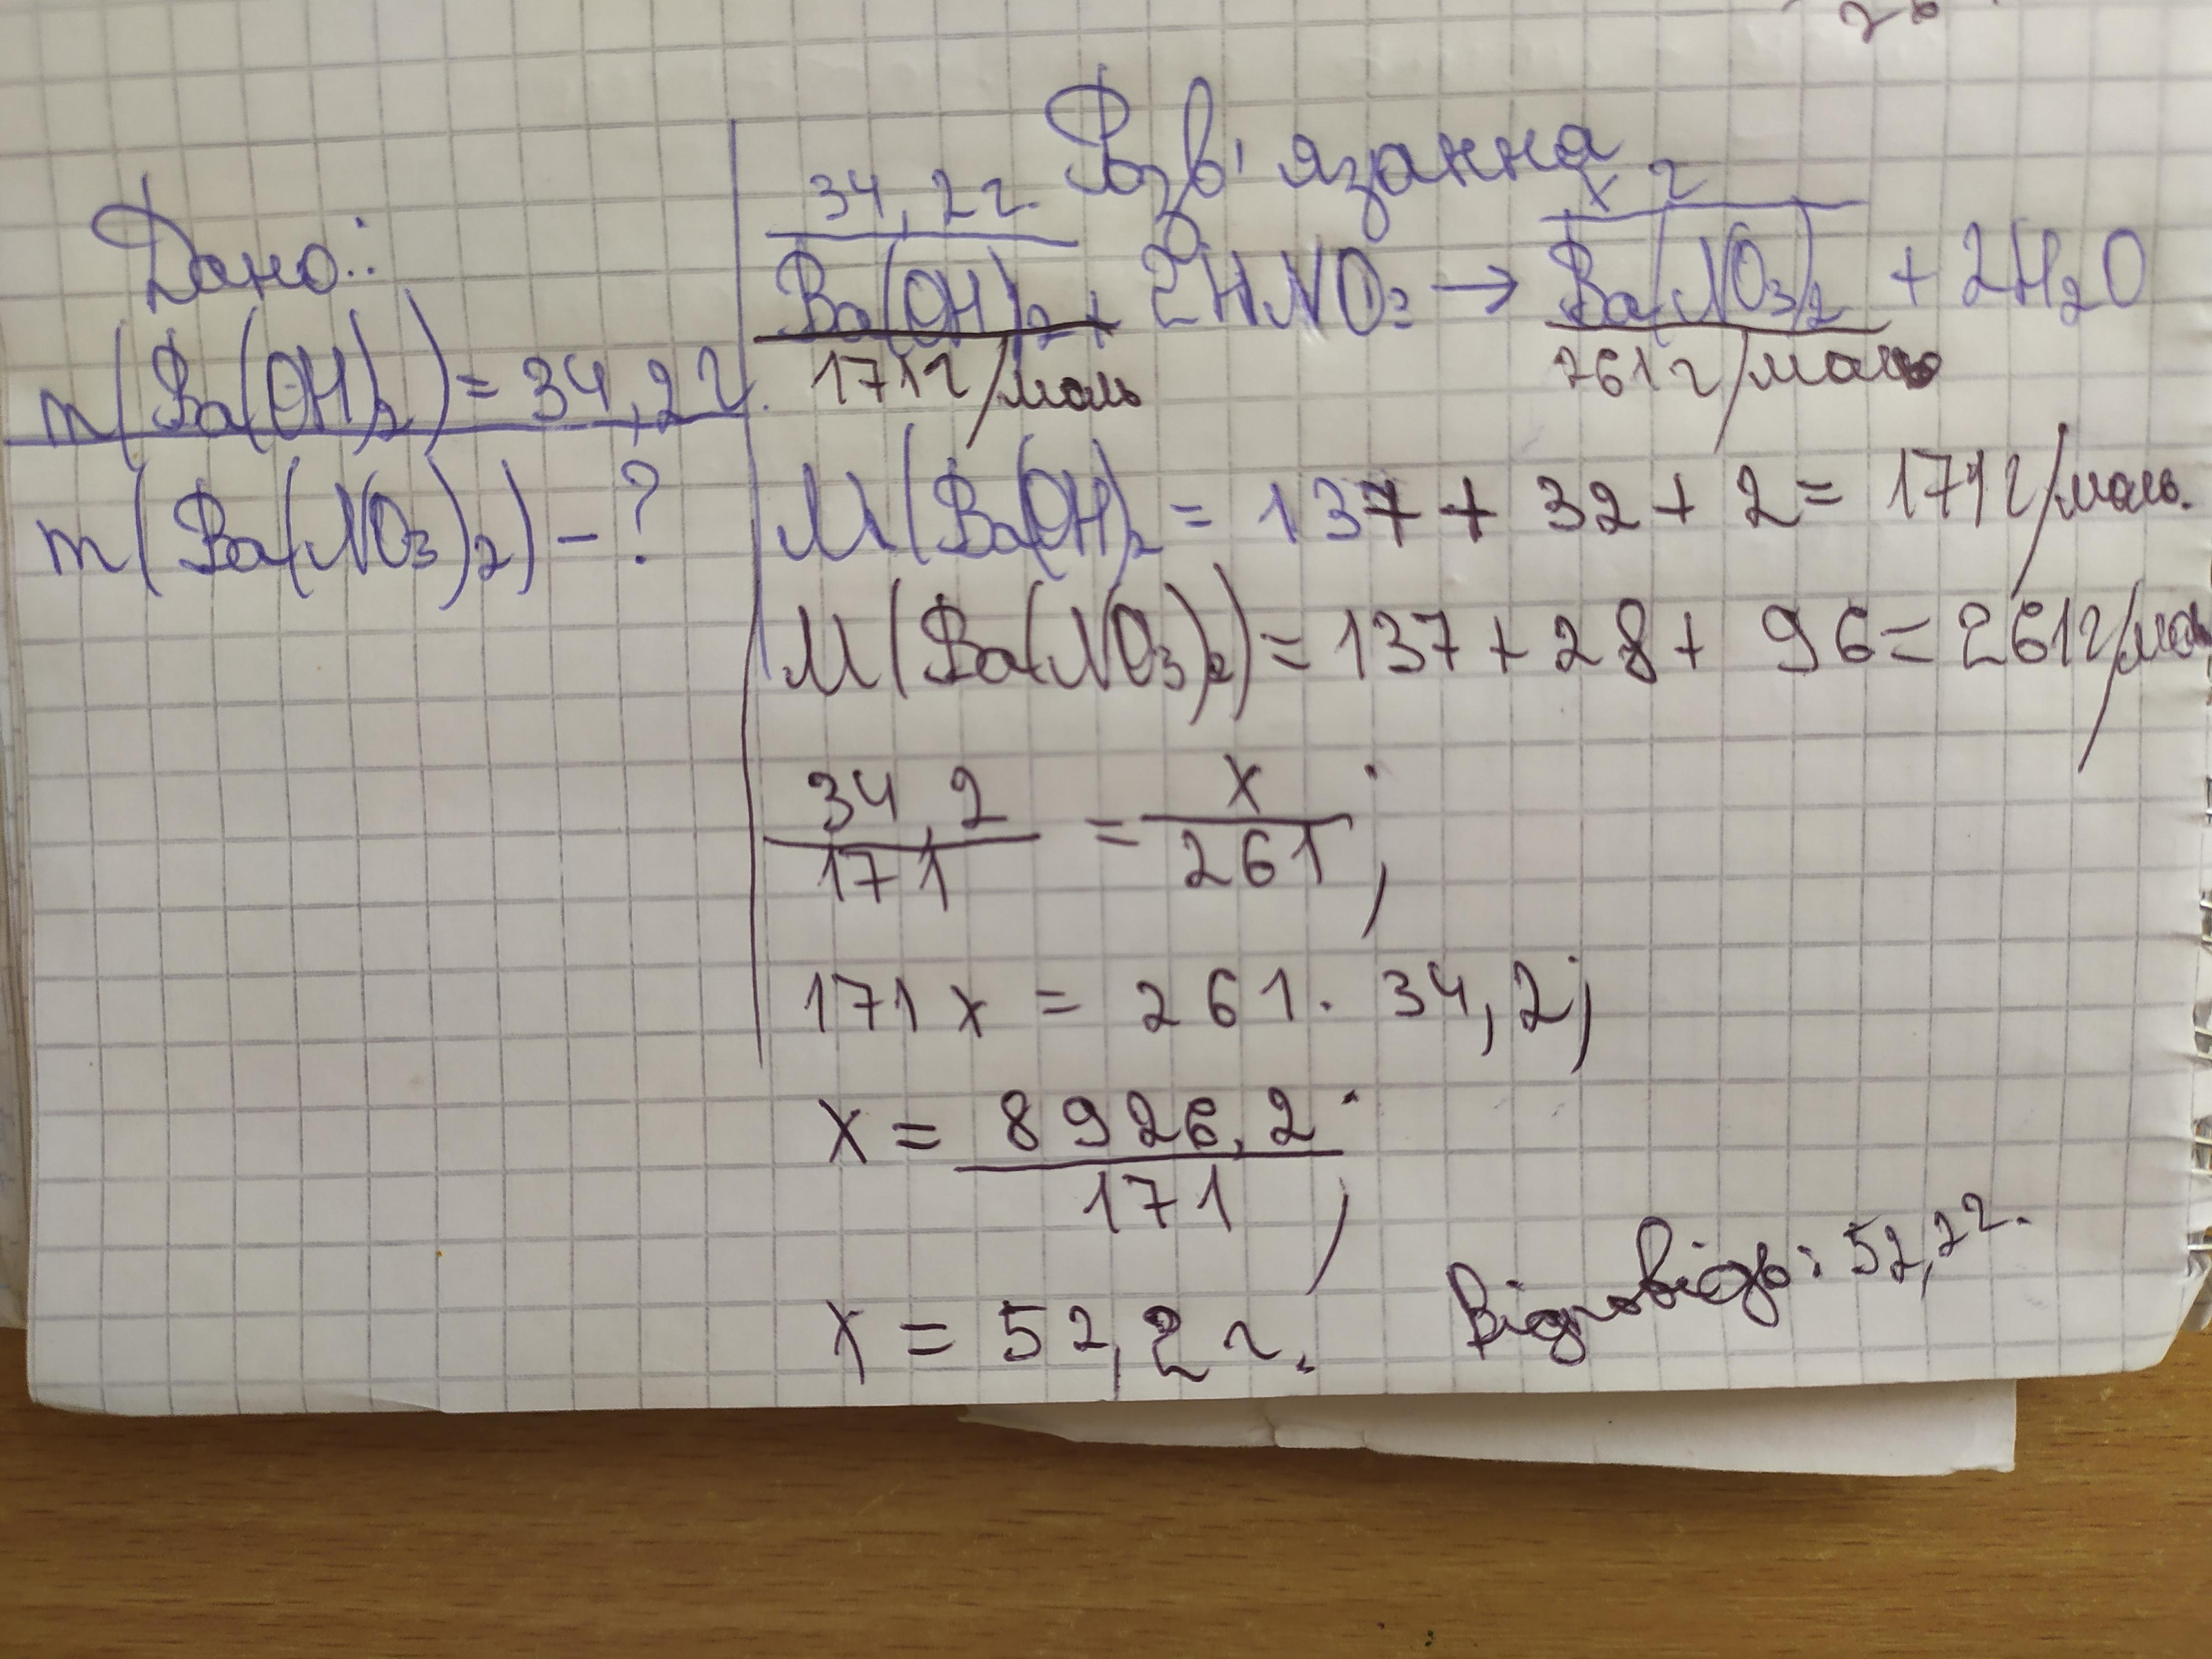 Розв'язання
Дано:
m(Ba(OH)₂) = 34,2 г.
m(Ba(NO₃)₂) - ?
34,2 г. x г
Ba(OH)₂ + 2HNO₃ → Ba(NO₃)₂ + 2H₂O
171 г/моль 261 г/моль
M(Ba(OH)₂ = 137 + 32 + 2 = 171 г/моль.
M(Ba(NO₃)₂) = 137 + 28 + 96 = 261 г/моль
34,2/171 = x/261;
171x = 261 · 34,2;
x = 8926,2/171;
x = 52,2 г.
Відповідь: 52,2 г.